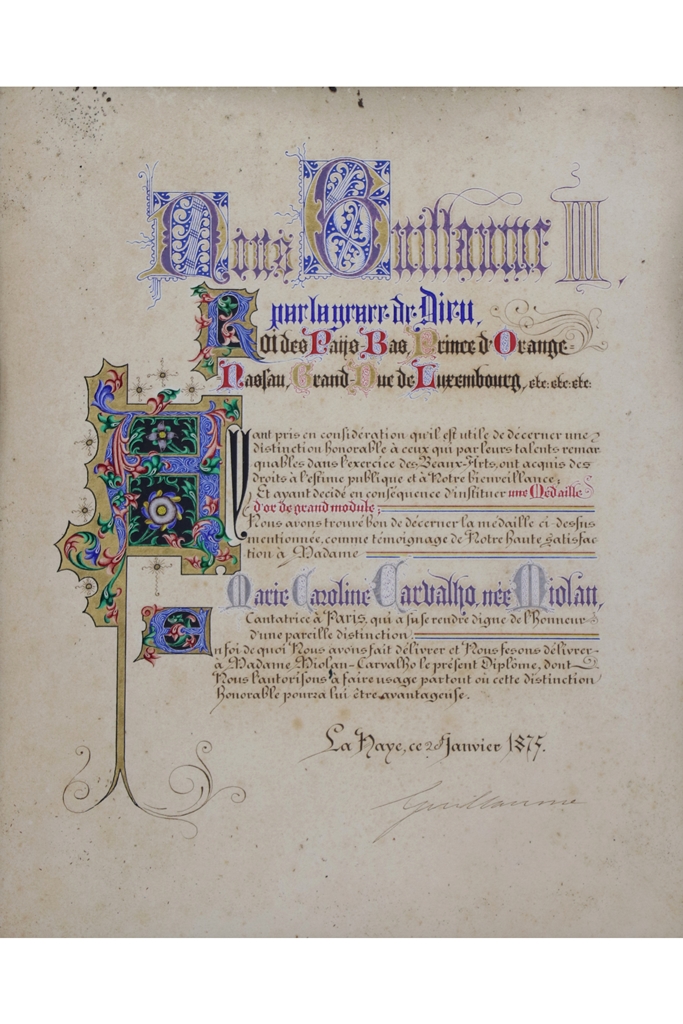 Nous Guillaume III,
par la grace de Dieu,
Roi des Pays-Bas, Prince d'Orange-
Nassau, Grand-Duc de Luxembourg, etc: etc: etc:
Ayant pris en considération qu'il est utile de décerner une
distinction honorable à ceux qui par leurs talents remar
quables dans l'exercice des Beaux-Arts, ont acquis des
droits à l'estime publique et à Notre bienveillance;
Et ayant décidé en conséquence d'instituer une Médaille
d'or de grand module;
Nous avons trouvé bon de décerner la médaille ci-dessus
mentionnée, comme témoignage de Notre haute satisfac
tion à Madame
Marie Caroline Carvalho, née Miolan,
Cantatrice à Paris, qui a su se rendre digne de l'honneur
d'une pareille distinction.
En foi de quoi Nous avons fait délivrer et Nous fesons délivrer
à Madame Miolan-Carvalho le présent Diplôme, dont
Nous l'autorisons à faire usage partout où cette distinction
honorable pourra lui être avantageuse.
La Haye, ce Janvier 1875.
Guillaume